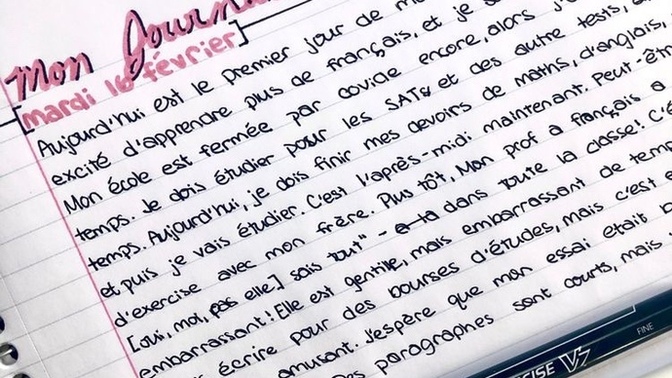 Mon Journal
[mardi 16 février]
Aujourd'hui est le premier jour de
excité d'apprendre plus de français, et je
Mon école est fermée par covide encore, alors
temps. Je dois étudier pour les SATs et des autre tests,
temps. Aujourd'hui, je dois finir mes devoirs de maths, d'anglois,
et puis je vais étudier. C'est l'après-midi maintenant. Peut-êt
d'exercise avec mon frère. Plus tôt, Mon prof a français a
[oui, moi, pas elle] sais tout" - dans toute la classe! C'é
embarrassant! Elle est gentille, mais embarrassant de temp
écrire pour des bourses d'études, mais c'est
amusant. J'espère que mon essai etait
Des paragraphes sont courts, mais
CISE V7 FINE